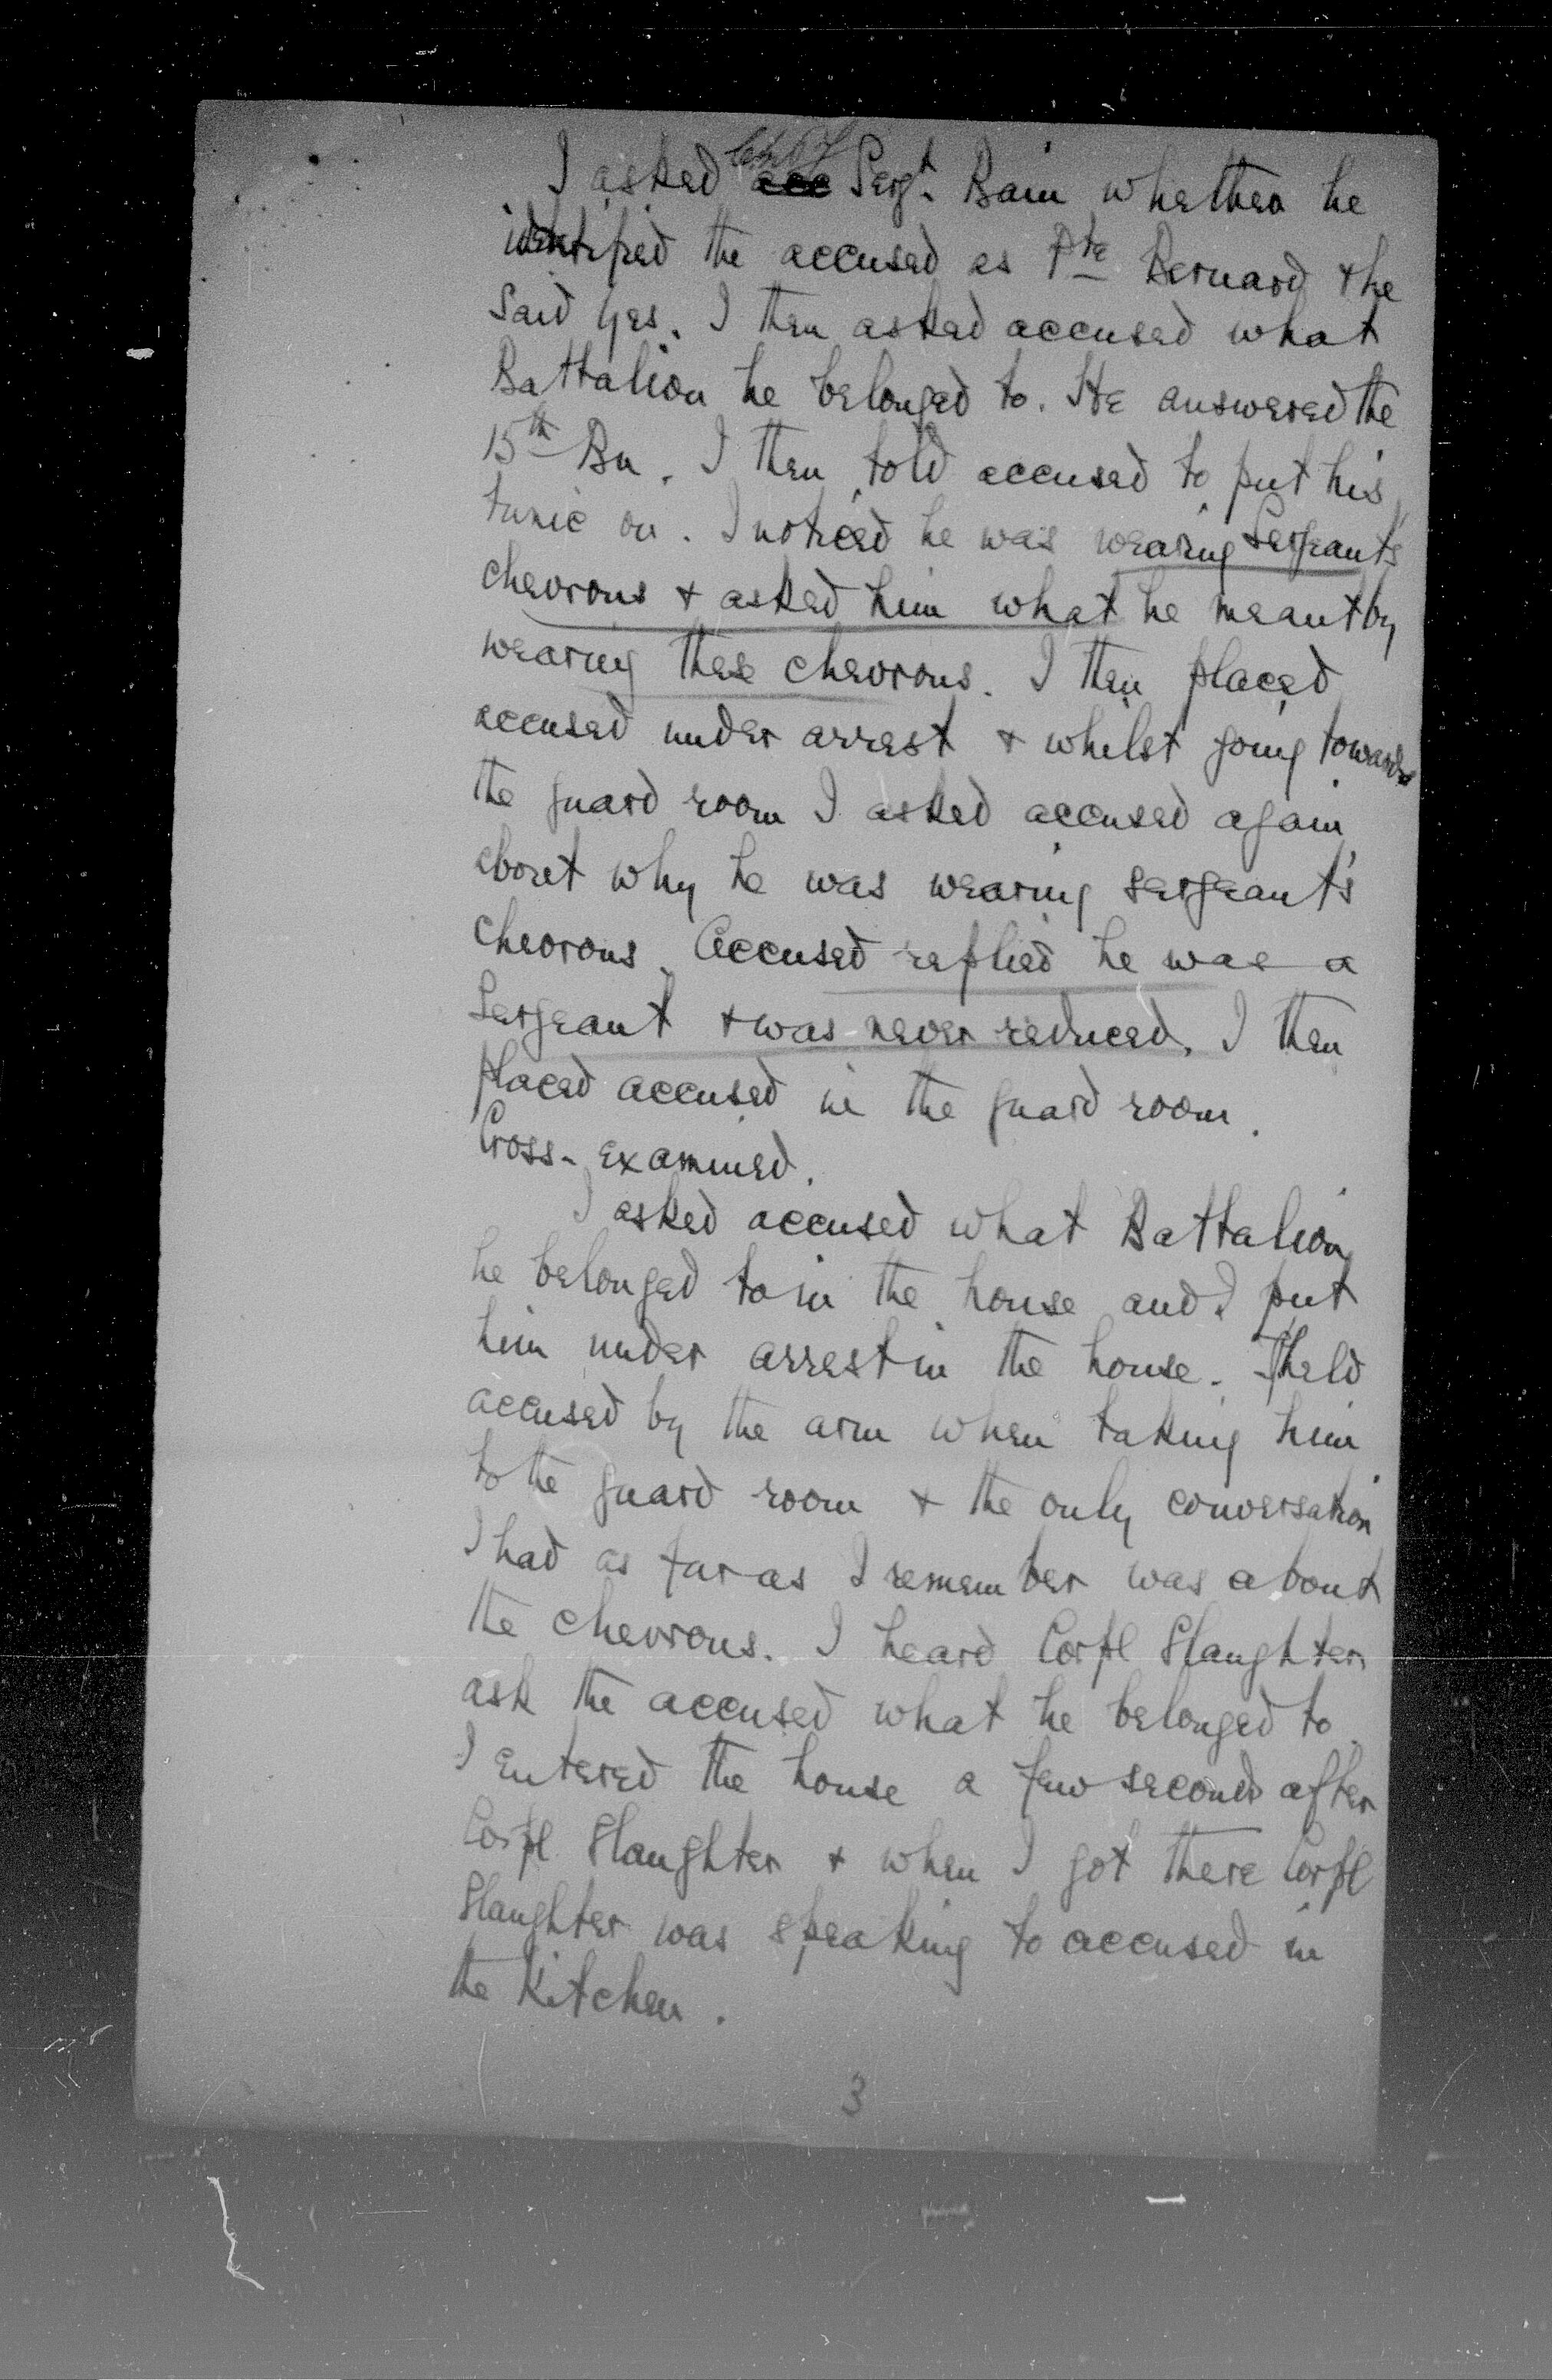 I asked Sergt. Bain whether he
identified the accused as Pte Bernard & he
said yes. I then asked accused what
Battalion he belonged to. He answered the
15th Bn. I then told accused to put his
tunic on. I noticed he was wearing Sergeant's
chevrons & asked him what he meant by
wearing these chevrons. I then placed
accused under arrest & whilst going towards
the guard room I asked accused again
about why he was wearing sergeant's
chevrons. Accused replied he was a
Sergeant & was never reduced. I then
placed accused in the guard room.
Cross-examined.
I asked accused what Battalion
he belonged to in the house and I put
him under arrest in the house. I held
accused by the arm when taking him
to the guard room & the only conversation
I had as far as I remember was about
the chevrons. I heard Corpl Slaughter
ask the accused what he belonged to.
I entered the house a few seconds after
Corpl Slaughter & when I got there Corpl
Slaughter was speaking to accused in
the Kitchen.
3